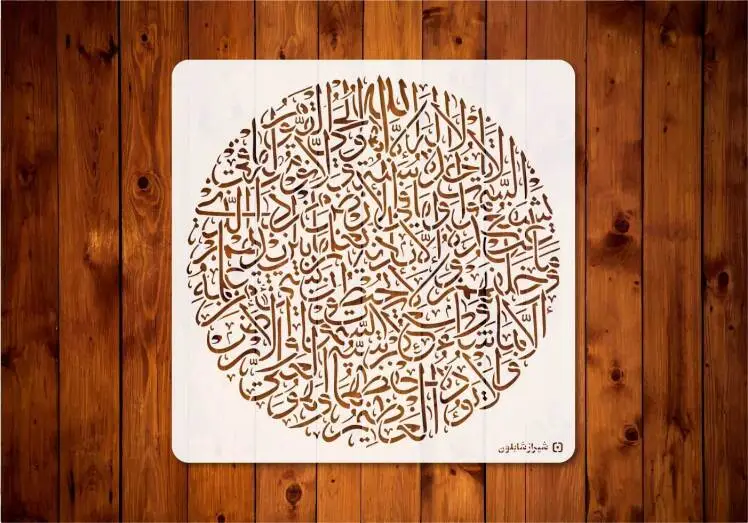 الله لا إله إلا هو الحي القيوم
لا تأخذه سنة ولا نوم
له ما في السموات وما في الأرض
من ذا الذي يشفع عنده إلا بإذنه
يعلم ما بين أيديهم وما خلفهم
ولا يحيطون بشيء من علمه إلا بما شاء
وسع كرسيه السموات والأرض
ولا يؤوده حفظهما وهو العلي العظيم
شیراز شابلون